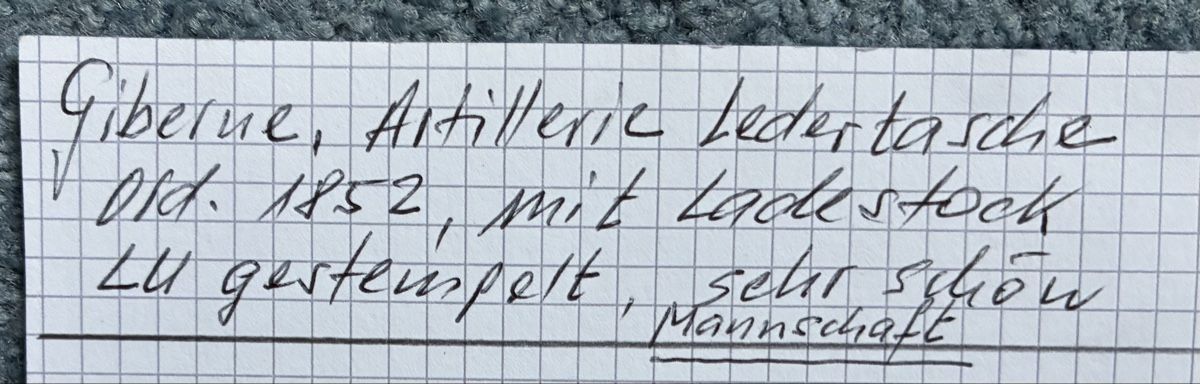 Giberne, Artillerie Ledertasche
Ord. 1852, mit Ladestock
LU gestempelt, sehr schön
Mannschaft